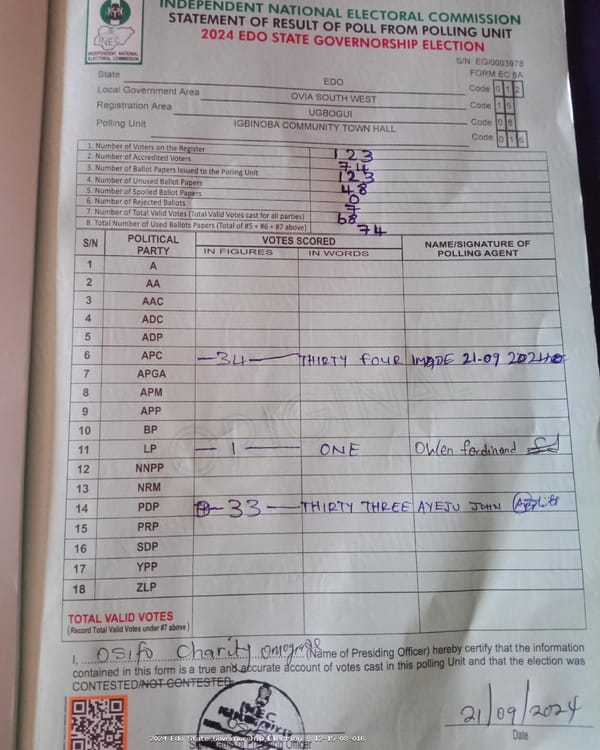 INDEPENDENT NATIONAL ELECTORAL COMMISSION
STATEMENT OF RESULT OF POLL FROM POLLING UNIT
2024 EDO STATE GOVERNORSHIP ELECTION
INEC
INDEPENDENT NATIONAL
ELECTORAL COMMISSION
S/N: EG/0003978
FORM EC 8A
State EDO Code 0 1 2
Local Government Area OVIA SOUTH WEST Code 1 5
Registration Area UGBOGUI Code 0 8
Polling Unit IGBINOBA COMMUNITY TOWN HALL Code 0 1 6
1. Number of Voters on the Register 123
2. Number of Accredited Voters 74
3. Number of Ballot Papers Issued to the Polling Unit 123
4. Number of Unused Ballot Papers 48
5. Number of Spoiled Ballot Papers 0
6. Number of Rejected Ballots 7
7. Number of Total Valid Votes (Total Valid Votes cast for all parties) 68
8. Total Number of Used Ballots Papers (Total of #5 + #6 + #7 above) 74
S/N POLITICAL PARTY VOTES SCORED NAME/SIGNATURE OF POLLING AGENT
IN FIGURES IN WORDS
1 A
2 AA
3 AAC
4 ADC
5 ADP
6 APC -34- THIRTY FOUR IMADE 21-09 2024
7 APGA
8 APM
9 APP
10 BP
11 LP - 1 - ONE Owen ferdinand
12 NNPP
13 NRM
14 PDP -33- THIRTY THREE AYEJU JOHN
15 PRP
16 SDP
17 YPP
18 ZLP
ORIGINAL
TOTAL VALID VOTES
(Record Total Valid Votes under #7 above)
I, Osifo Charity (Name of Presiding Officer) hereby certify that the information
contained in this form is a true and accurate account of votes cast in this polling Unit and that the election was
CONTESTED/NOT CONTESTED.
21/09/2024
Date
2024 Edo State Governorship Election - 12-15-08-016